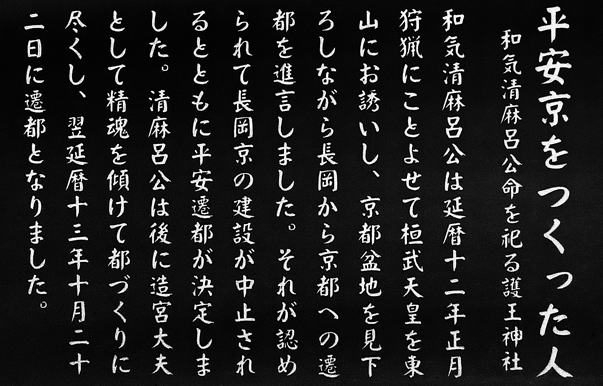 平安京をつくった人
和気清麻呂公命を祀る護王神社
和気清麻呂公は延暦十二年正月
狩猟にことよせて桓武天皇を東
山にお誘いし、京都盆地を見下
ろしながら長岡から京都への遷
都を進言しました。それが認め
られて長岡京の建設が中止され
るとともに平安遷都が決定しま
した。清麻呂公は後に造宮大夫
として精魂を傾けて都づくりに
尽くし、翌延暦十三年十月二十
二日に遷都となりました。